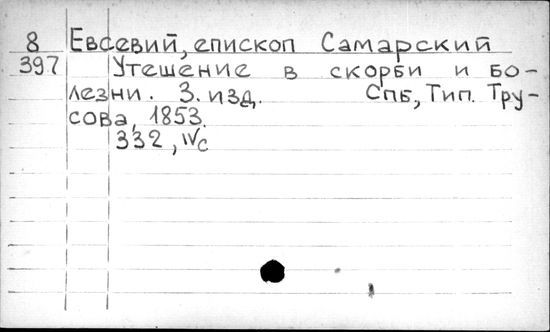 8 Евсевий, епископ Самарский
397 Утешение в скорби и бо-
лезни. 3. изд. СПБ, Тип. Тру-
сова, 1853.
332, IVс